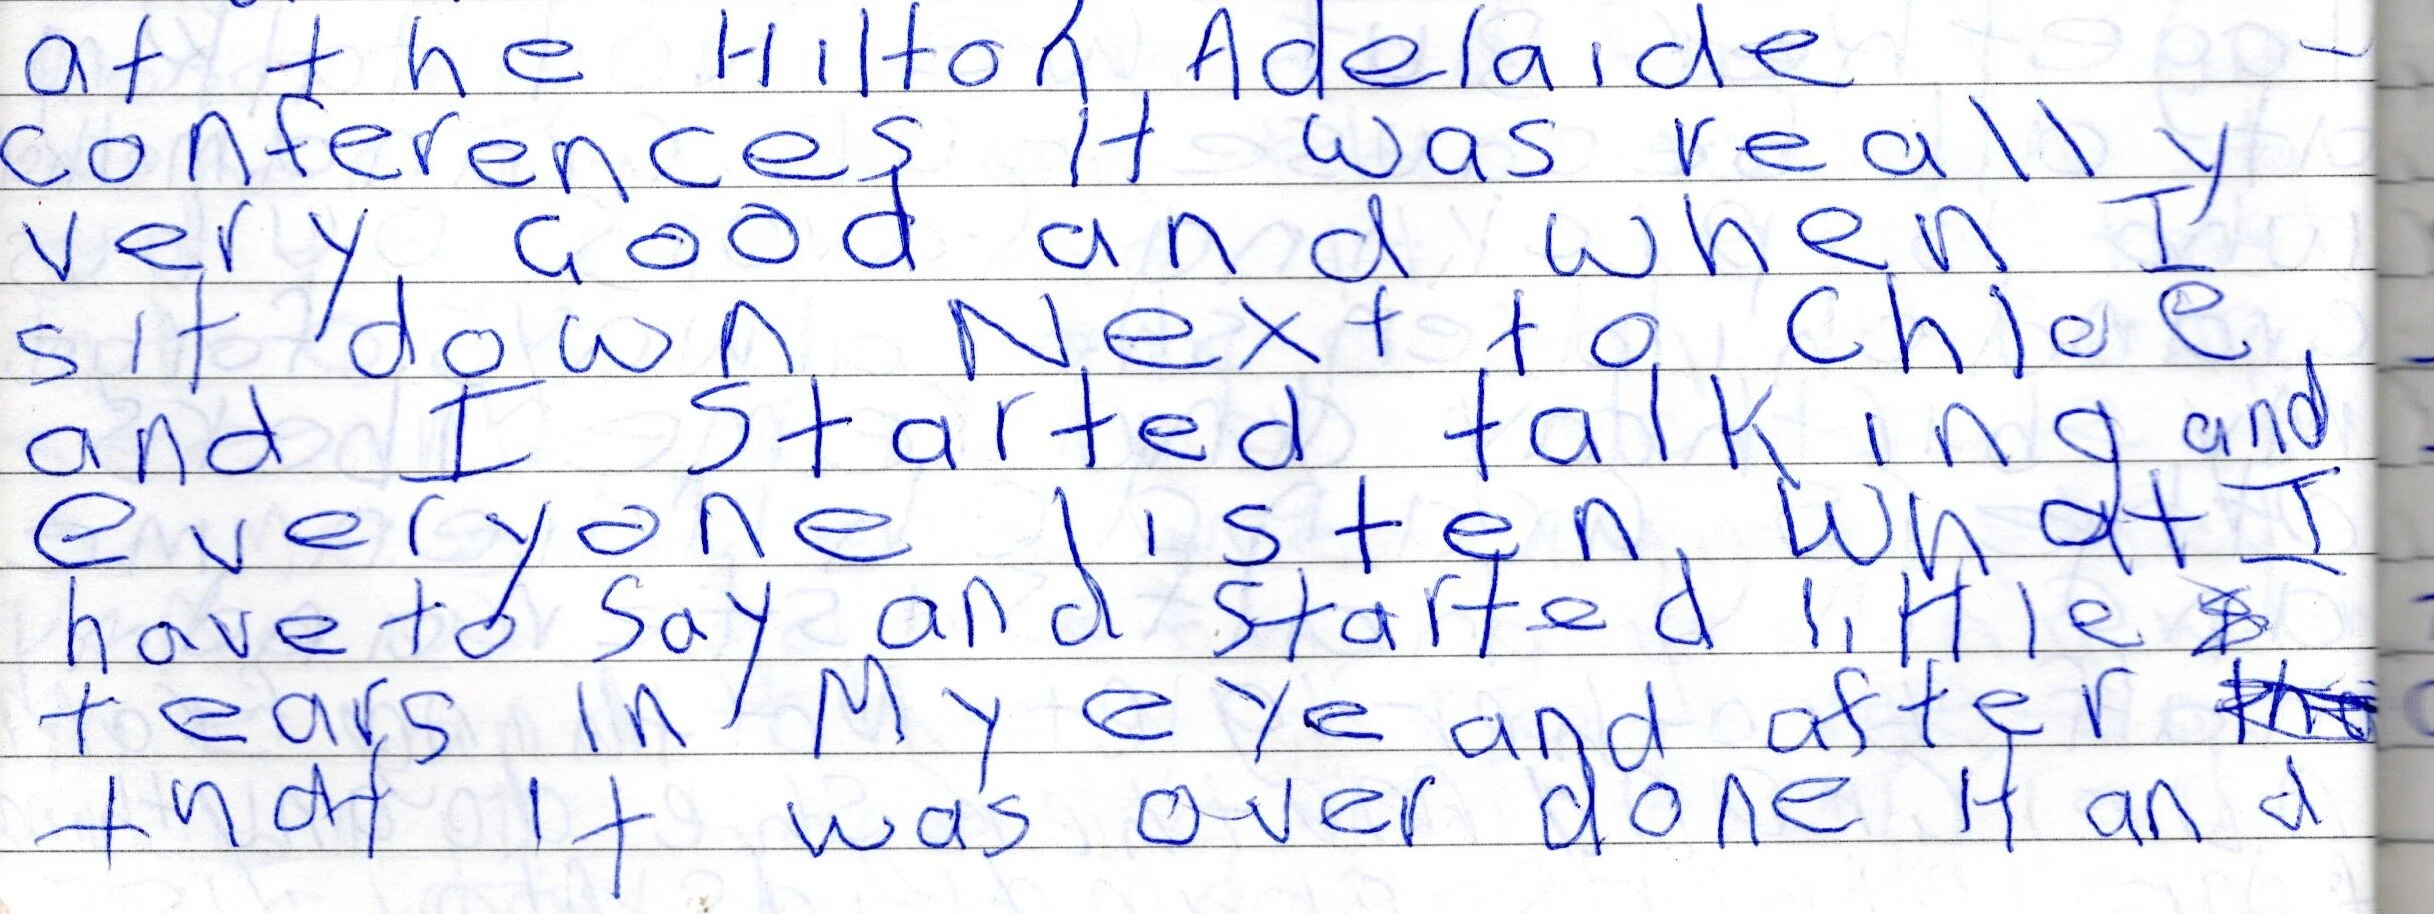 at the Hilton Adelaide
conferences It was really
very Good and when I
sit down Next to Chloe
and I Started talking and
everyone listen what I
have to say and started little
tears in My eye and after
that it was over done it and